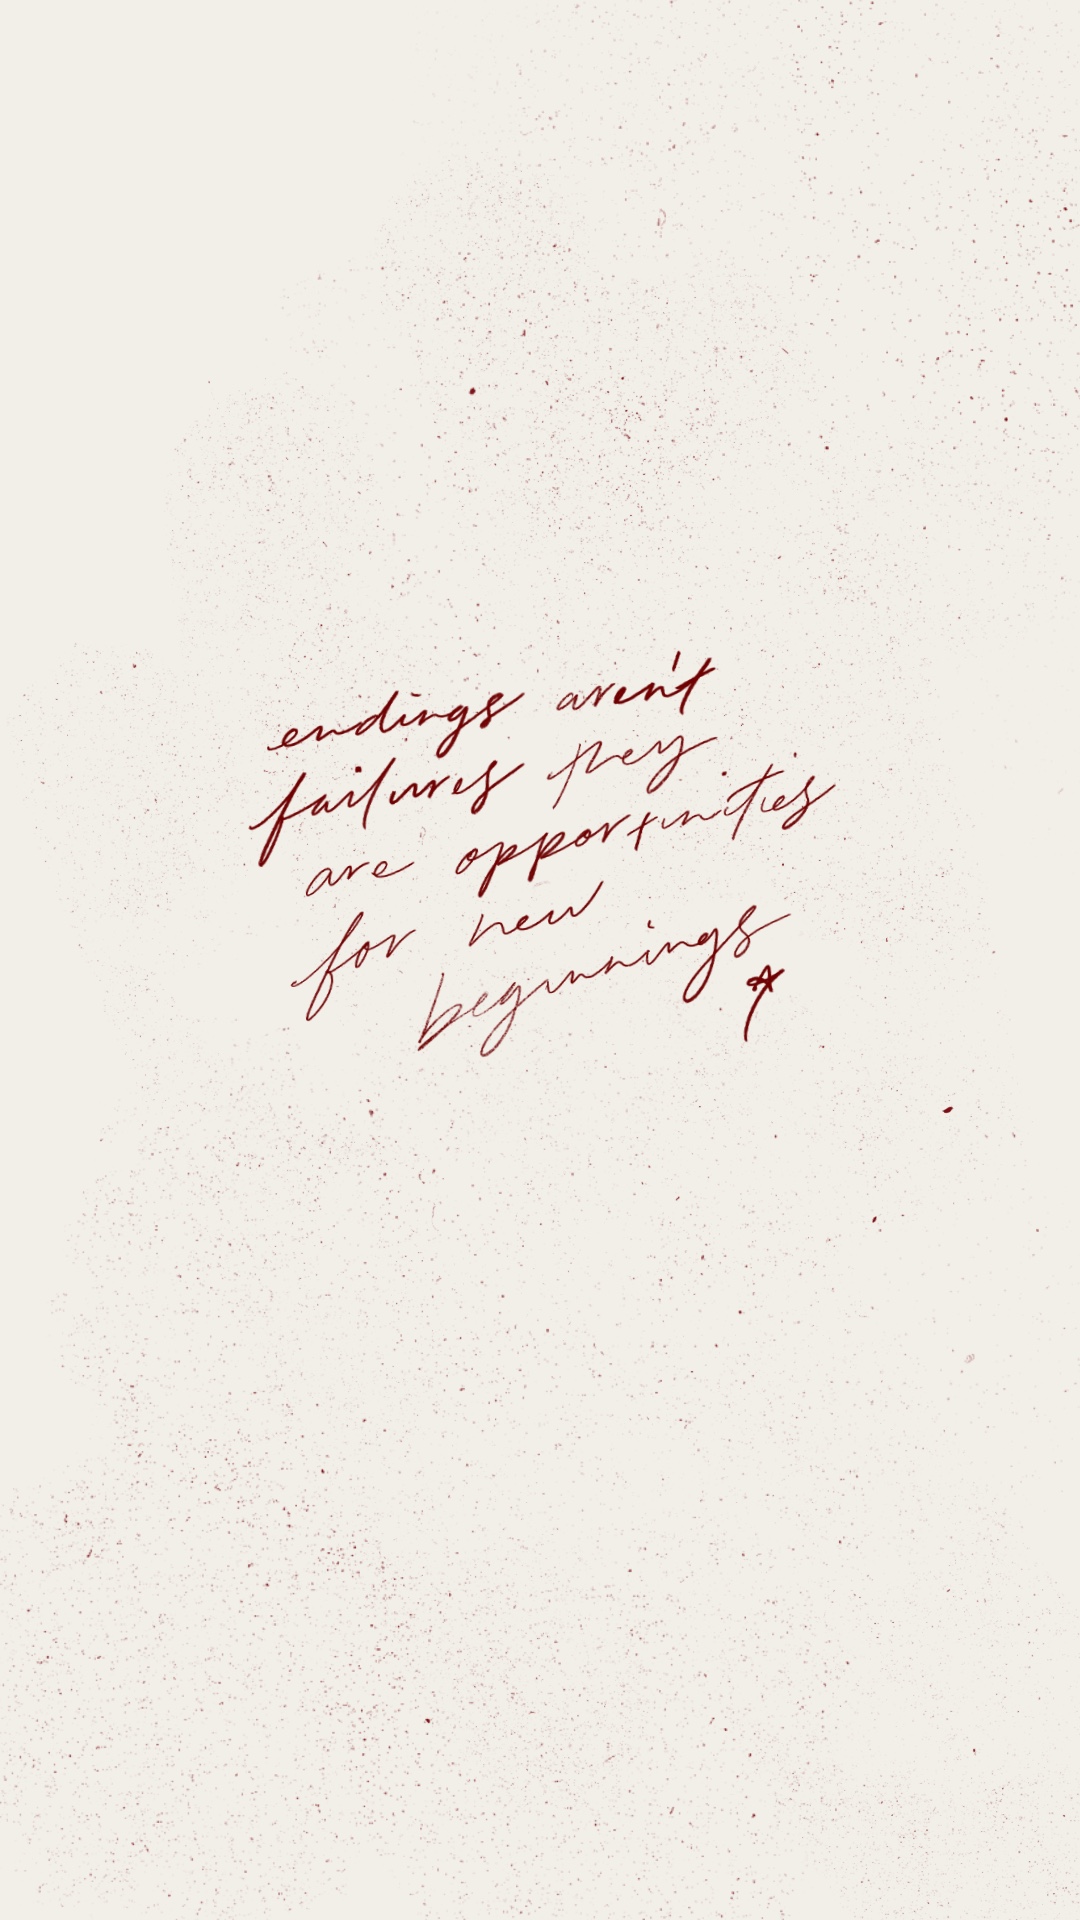 endings aren't
failures they
are opportunities
for new
beginnings